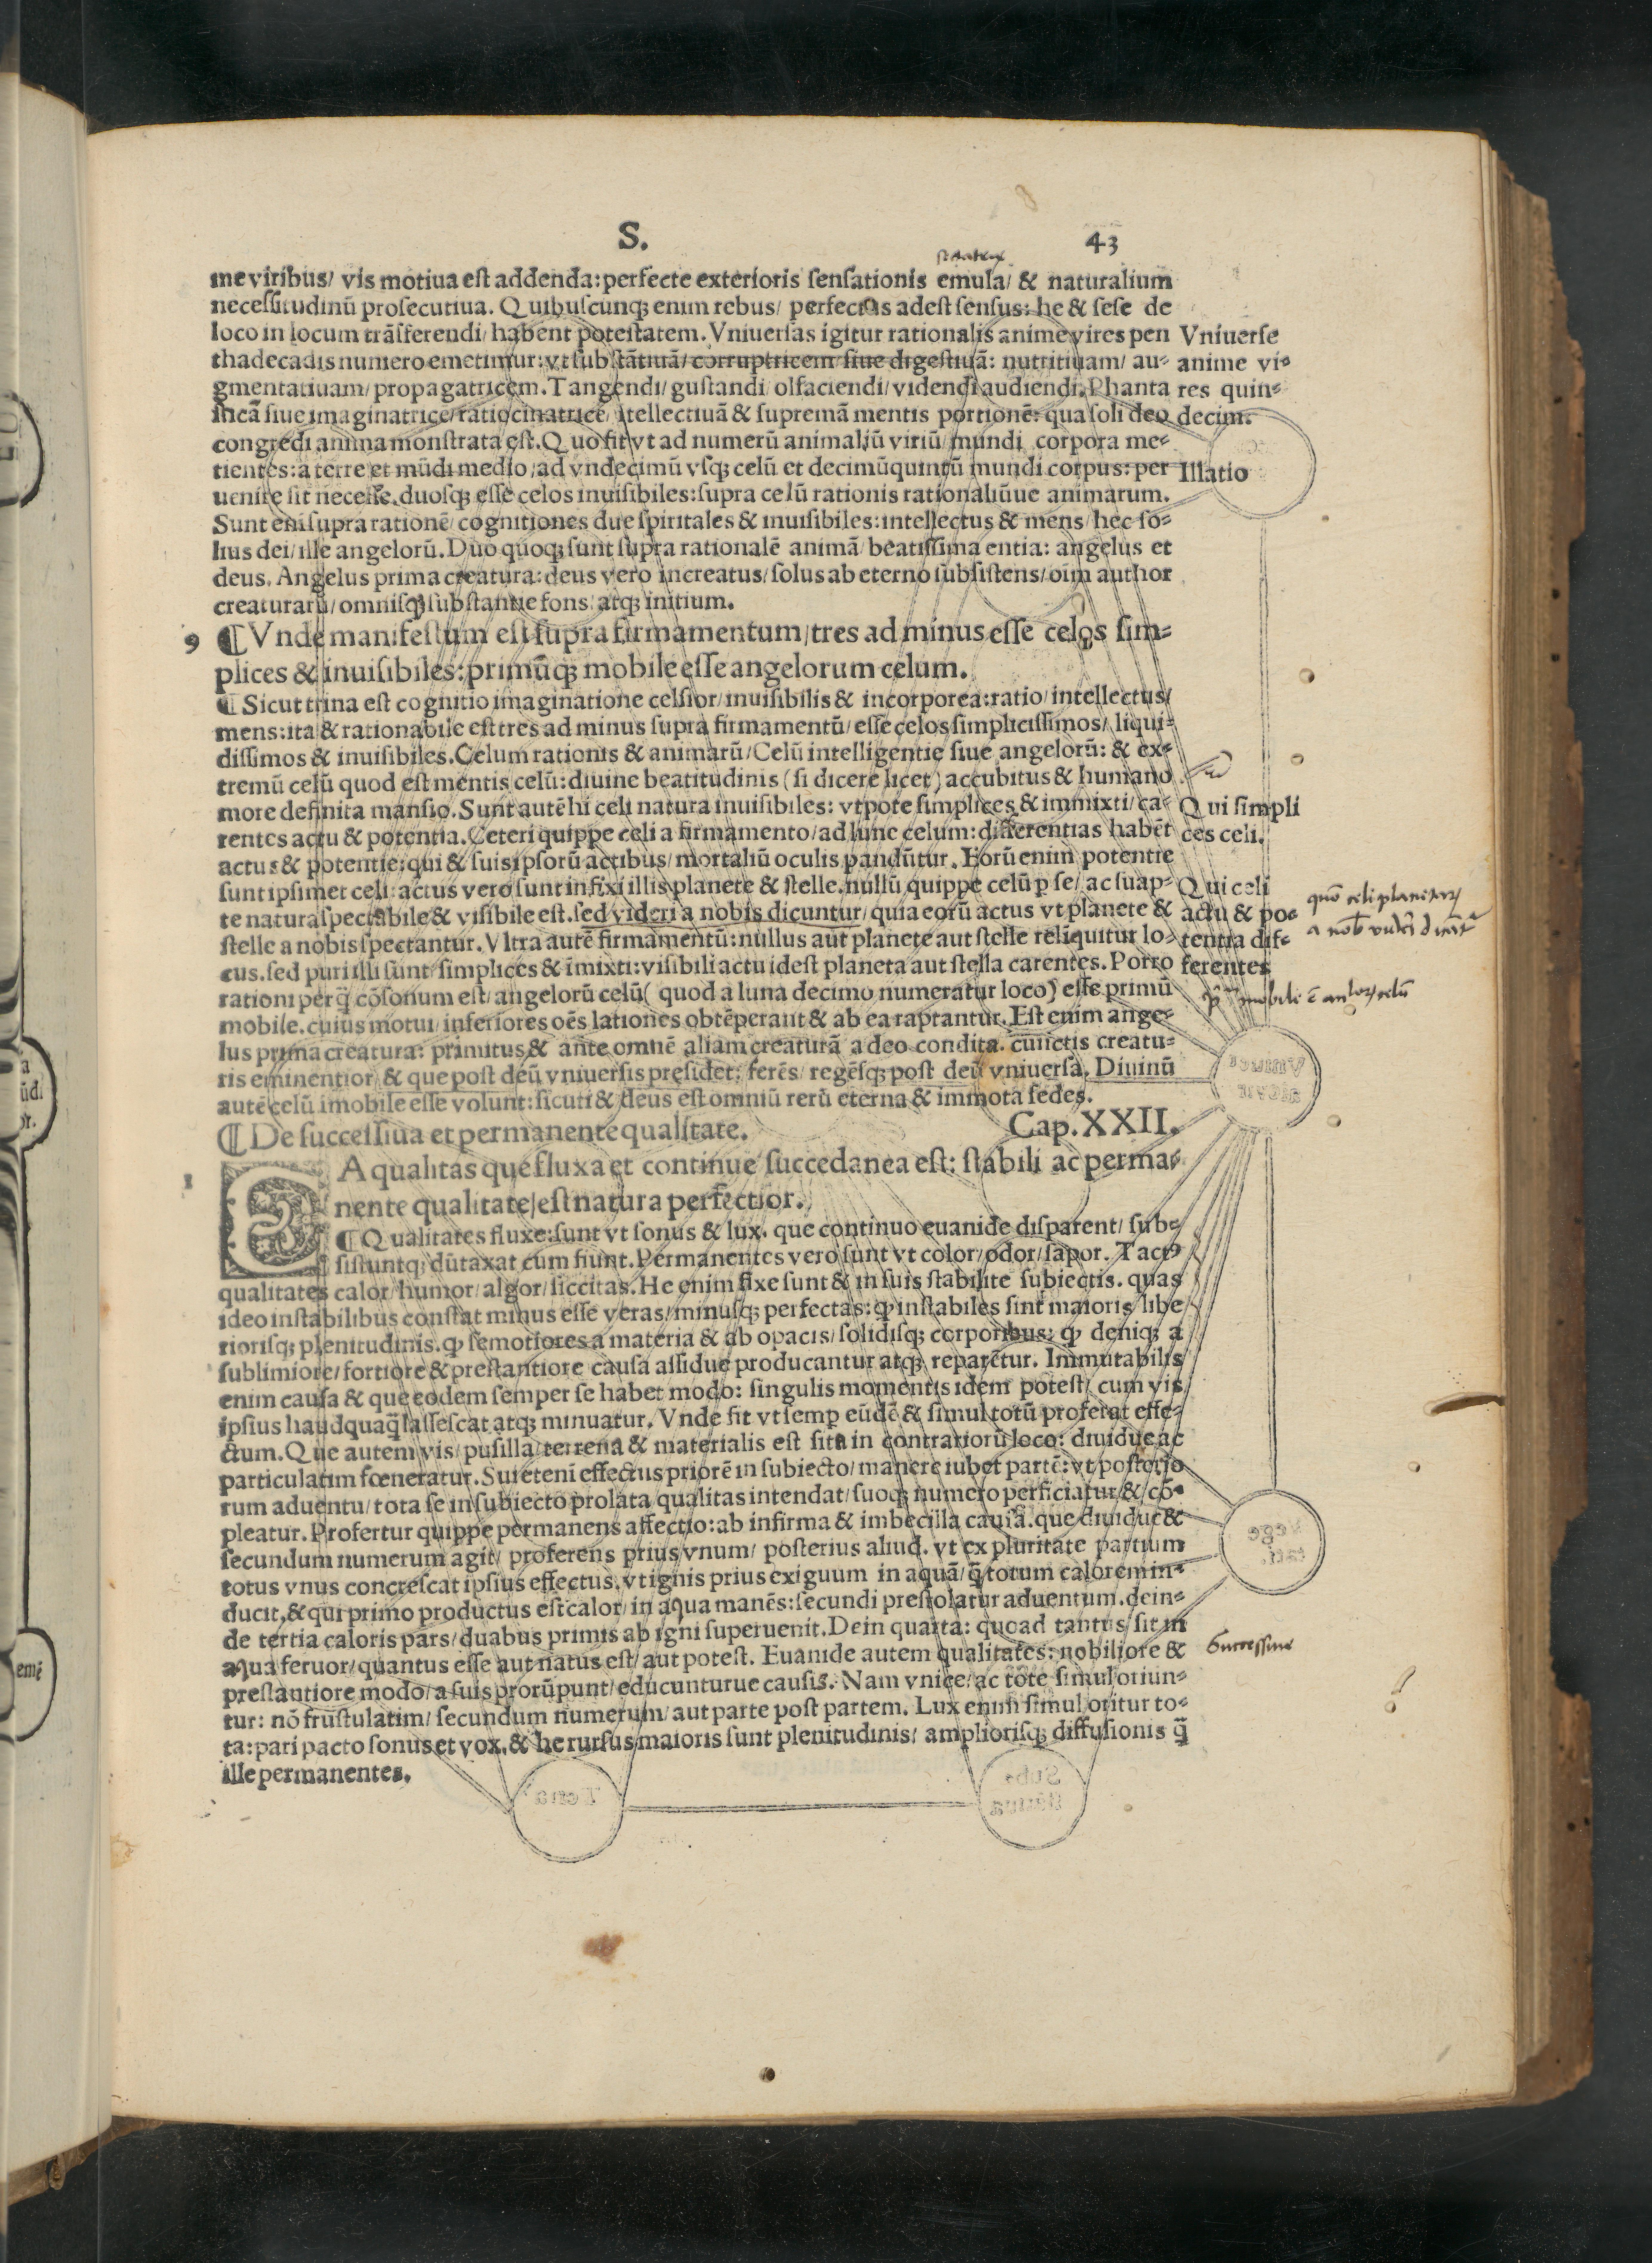 S.
43
me viribus/ vis motiua est addenda: perfecte exterioris sensationis emula/ & naturalium
necessitudinū prosecutiua. Quibuscunq; enim rebus/ perfectus adest sensus: he & sese de
loco in locum trāsferendi/ habent potestatem. Vniuersas igitur rationalis anime vires pen
Vniuerse
thadecadis numero emetimur: vt substātiuā/ corruptricem/ siue digestiuā: nutritiuam/ au-
anime vi-
gmentatiuam/ propagatricem. Tangendi/ gustandi/ olfaciendi/ videndi audiendi. Phanta
res quin-
sticā siue imaginatrice/ ratiocinatrice/ itellectiuā & supremā mentis portionē: qua soli deo
decim.
congredi anima monstrata est. Quo fit vt ad numerū animaliū viriū/ mundi corpora me-
tientes: a terre et mūdi medio/ ad vndecimū vsq; celū et decimūquintū mundi corpus: per
Illatio
uenire sit necesse. duosq; esse celos inuisibiles: supra celū rationis rationaliūue animarum.
Sunt eni supra rationē/ cognitiones due spiritales & inuisibiles: intellectus & mens/ hec so-
lius dei/ ille angelorū. Duo quoq; sunt supra rationalē animā/ beatissima entia: angelus et
deus. Angelus prima creatura: deus vero increatus/ solus ab eterno subsistens/ oīm author
creaturarū/ omnisq; substantie fons/ atq; initium.
9 ¶ Vnde manifestum est supra firmamentum/ tres ad minus esse celos sim-
plices & inuisibiles: primūq; mobile esse angelorum celum.
¶ Sicut trina est cognitio imaginatione celsior/ inuisibilis & incorporea: ratio/ intellectus/
mens: ita & rationabile est tres ad minus supra firmamentū/ esse celos simplicissimos/ liqui-
dissimos & inuisibiles. Celum rationis & animarū/ Celū intelligentie siue angelorū: & ex-
tremū celū quod est mentis celū: diuine beatitudinis (si dicere licet) accubitus & humano
more definita mansio. Sunt autē hi celi natura inuisibiles: vtpote simplices & immixti/ ca-
Qui simpli
rentes actu & potentia. Ceteri quippe celi a firmamento/ ad lune celum: differentias habēt
ces celi.
actus & potentie: qui & suis ipsorū actibus/ mortaliū oculis pandūtur. Eorū enim potentie
sunt ipsimet celi: actus vero sunt infixi illis planete & stelle. nullū quippe celū p se/ ac suap-
Qui celi
te natura spectabile & visibile est. sed videri a nobis dicuntur/ quia eorū actus vt planete &
actu & po-
stelle a nobis spectantur. Vltra autē firmamentū: nullus aut planete aut stelle relīquitur lo-
tentia dif-
cus. sed puri illi sunt/ simplices & īmixti: visibili actu idest planeta aut stella carentes. Porro
ferentes
rationi per q̄ cōsonum est/ angelorū celū (quod a luna decimo numeratur loco) esse primū
mobile. cuius motui/ inferiores oēs lationes obtēperant & ab ea raptantur. Est enim ange-
lus prima creatura: primitus & ante omnē aliam creaturā a deo condita. cunctis creatu-
ris eminentior/ & que post deū vniuersis presidet: ferēs/ regēsq; post deū vniuersa. Diuinū
autē celū imobile esse volunt: sicuti & deus est omniū rerū eterna & immota sedes.
¶ De successiua et permanente qualitate. Cap. XXII.
1 EA qualitas que fluxa et continue succedanea est: stabili ac perma-
nente qualitate/ est natura perfectior.
¶ Qualitates fluxe: sunt vt sonus & lux. que continuo euanide disparent/ sub-
sistuntq; dūtaxat cum fiunt. Permanentes vero sunt vt color/ odor/ sapor. Tactꝰ
qualitates calor/ humor/ algor/ siccitas. He enim fixe sunt & in suis stabilite subiectis. quas
ideo instabilibus constat minus esse veras/ minusq; perfectas: ꝙ instabiles sint maioris/ libe
riorisq; plenitudinis. ꝙ semotiores a materia & ab opacis/ solidisq; corporibus: ꝙ deniq; a
sublimiore/ fortiore & prestantiore causa assidue producantur atq; reparētur. Immutabilis
enim causa & que eodem semper se habet modo: singulis momentis idem potest/ cum vis
ipsius haudquaq̄ lassescat atq; minuatur. Vnde fit vt semp eūdē & simul totū proferat effe-
ctum. Que autem vis/ pusilla/ terrena & materialis est sita in contrariorū loco: diuidue ac
particulatim fœneratur. Sui etenī effectus priorē in subiecto/ manere iubet partē: vt posterio
rum aduentu/ tota se in subiecto prolata/ qualitas intendat/ suoq; numero perficiatur/ & cō-
pleatur. Profertur quippe permanens affectio: ab infirma & imbecilla causa. que diuidue &
secundum numerum agit/ proferens prius vnum/ posterius aliud. vt ex pluritate partium
totus vnus concrescat ipsius effectus. vt ignis prius exiguum in aquā/ q̄ totum calorem in-
ducit. & qui primo productus est calor/ in aqua manēs: secundi prestolatur aduentum. dein-
de tertia caloris pars/ duabus primis ab igni superuenit. Dein quarta: quoad tantus/ sit in
aqua feruor/ quantus esse aut natus est/ aut potest. Euanide autem qualitates: nobiliore &
Successiue
prestantiore modo/ a suis prorūpunt/ educunturue causis. Nam vnice/ ac tote simul oriun-
tur: nō frustulatim/ secundum numerum/ aut parte post partem. Lux enim simul oritur to-
ta: pari pacto sonus et vox. & he rursus maioris sunt plenitudinis/ ampliorisq; diffusionis q̄
ille permanentes.